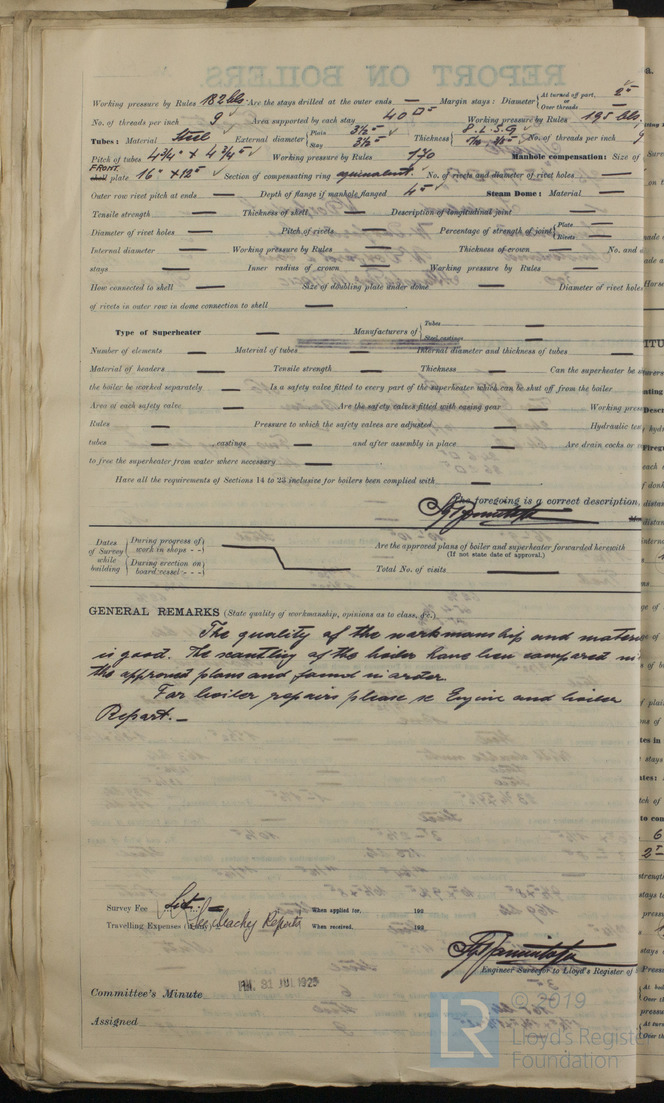 Working pressure by Rules 182 lbs Are the stays drilled at the outer ends — Margin stays: Diameter { At turned off part, 2" or Over threads —
No. of threads per inch 9 Area supported by each stay 40 □" Working pressure by Rules 195 lbs.
Tubes: Material Steel External diameter { Plain 3½" Stay 3½" Thickness { 8. L.S.G No. of threads per inch 9
Pitch of tubes 4¾" x 4¾" Working pressure by Rules 190 Manhole compensation: Size of
FRONT shell plate 16" x 12" Section of compensating ring equivalent. No. of rivets and diameter of rivet holes —
Outer row rivet pitch at ends — Depth of flange if manhole flanged 4" Steam Dome: Material —
Tensile strength — Thickness of shell — Description of longitudinal joint —
Diameter of rivet holes — Pitch of rivets — Percentage of strength of joint { Plate — Rivets —
Internal diameter — Working pressure by Rules — Thickness of crown — No. and
stays — Inner radius of crown — Working pressure by Rules —
How connected to shell — Size of doubling plate under dome — Diameter of rivet holes
of rivets in outer row in dome connection to shell —
Type of Superheater — Manufacturers of { Tubes — Steel castings —
Number of elements — Material of tubes — Internal diameter and thickness of tubes —
Material of headers — Tensile strength — Thickness — Can the superheater be
the boiler be worked separately — Is a safety valve fitted to every part of the superheater which can be shut off from the boiler
Area of each safety valve — Are the safety valves fitted with easing gear — Working
Rules — Pressure to which the safety valves are adjusted — Hydraulic
tubes — castings — and after assembly in place — Are drain cocks or
to free the superheater from water where necessary —
Have all the requirements of Sections 14 to 23 inclusive for boilers been complied with —
The foregoing is a correct description,
Dates of Survey while building { During progress of work in shops - - During erection on board vessel - - Are the approved plans of boiler and superheater forwarded herewith
(If not state date of approval.)
Total No. of visits —
GENERAL REMARKS (State quality of workmanship, opinions as to class, &c.)
The quality of the workmanship and
is good. The scantling of the boiler have been compared
the approved plans and found in order.
For boiler repairs please see Engine and boiler
Report. —
Survey Fee When applied for, 192
Travelling Expenses (if any) Reports When received, 192
Engineer Surveyor to Lloyd's Register of
Committee's Minute FRI. 31 JUL 1925
Assigned
LR © 2019
Lloyd's Register
Foundation